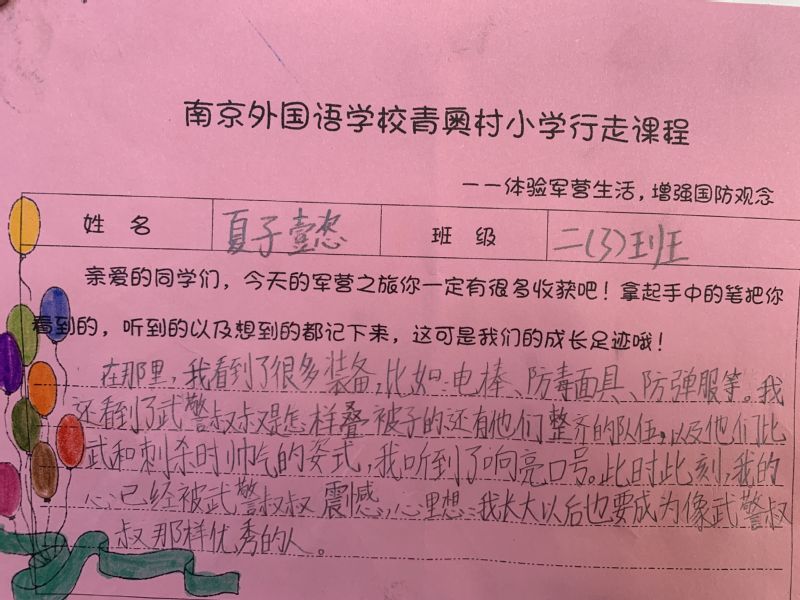 南京外国语学校青奥村小学行走课程
——体验军营生活，增强国防观念
姓 名 夏子懿 班 级 二(3)班
亲爱的同学们，今天的军营之旅你一定有很多收获吧！拿起手中的笔把你
看到的，听到的以及想到的都记下来，这可是我们的成长足迹哦！
在那里，我看到了很多装备，比如：电棒、防毒面具、防弹服等。我
还看到了武警叔叔是怎样叠被子的还有他们整齐的队伍，以及他们比
武和刺杀时帅气的姿式，我听到了响亮口号。此时此刻，我的
心已经被武警叔叔震憾，心里想：我长大以后也要成为像武警叔
叔那样优秀的人。